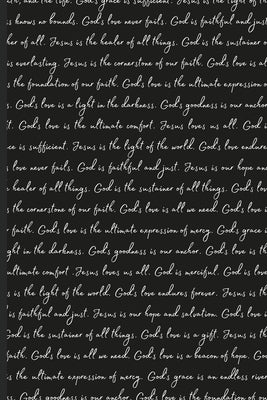 and the life. God's grace is sufficient. Jesus is the light of
s knows no bounds. God's love never fails. God is faithful and just
her of all. Jesus is the healer of all things. God is the sustainer o
is everlasting. Jesus is the cornerstone of our faith. God's love is
s the foundation of our faith. God's love is the ultimate expression
s. God's love is a light in the darkness. God's goodness is our anchor
t. God's love is the ultimate comfort. Jesus loves us all. God i
ce is sufficient. Jesus is the light of the world. God's love endure
s love never fails. God is faithful and just. Jesus is our hope an
e healer of all things. God is the sustainer of all things. God's l
s the cornerstone of our faith. God's love is all we need. God's love i
r faith. God's love is the ultimate expression of mercy. God's grace i
ght in the darkness. God's goodness is our anchor. God's love is th
ultimate comfort. Jesus loves us all. God is merciful. God's love is
s is the light of the world. God's love endures forever. Jesus is th
is faithful and just. Jesus is our hope and salvation. God's love i
God is the sustainer of all things. God's love is a gift. Jesus is th
faith. God's love is all we need. God's love is a beacon of hope. Go
is the ultimate expression of mercy. God's grace is an endless river
s. God's goodness is our anchor. God's love is the foundation of ou